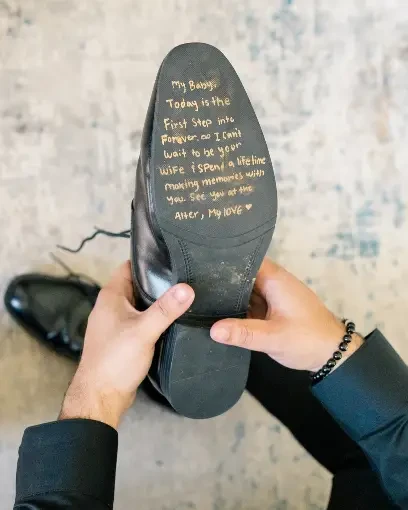 My Baby,
Today is the
First Step into
Forever ∞ I Can't
wait to be your
WiFe & SPend a lifetime
making memories with
you. See you at the
Alter, My LOVE ♥